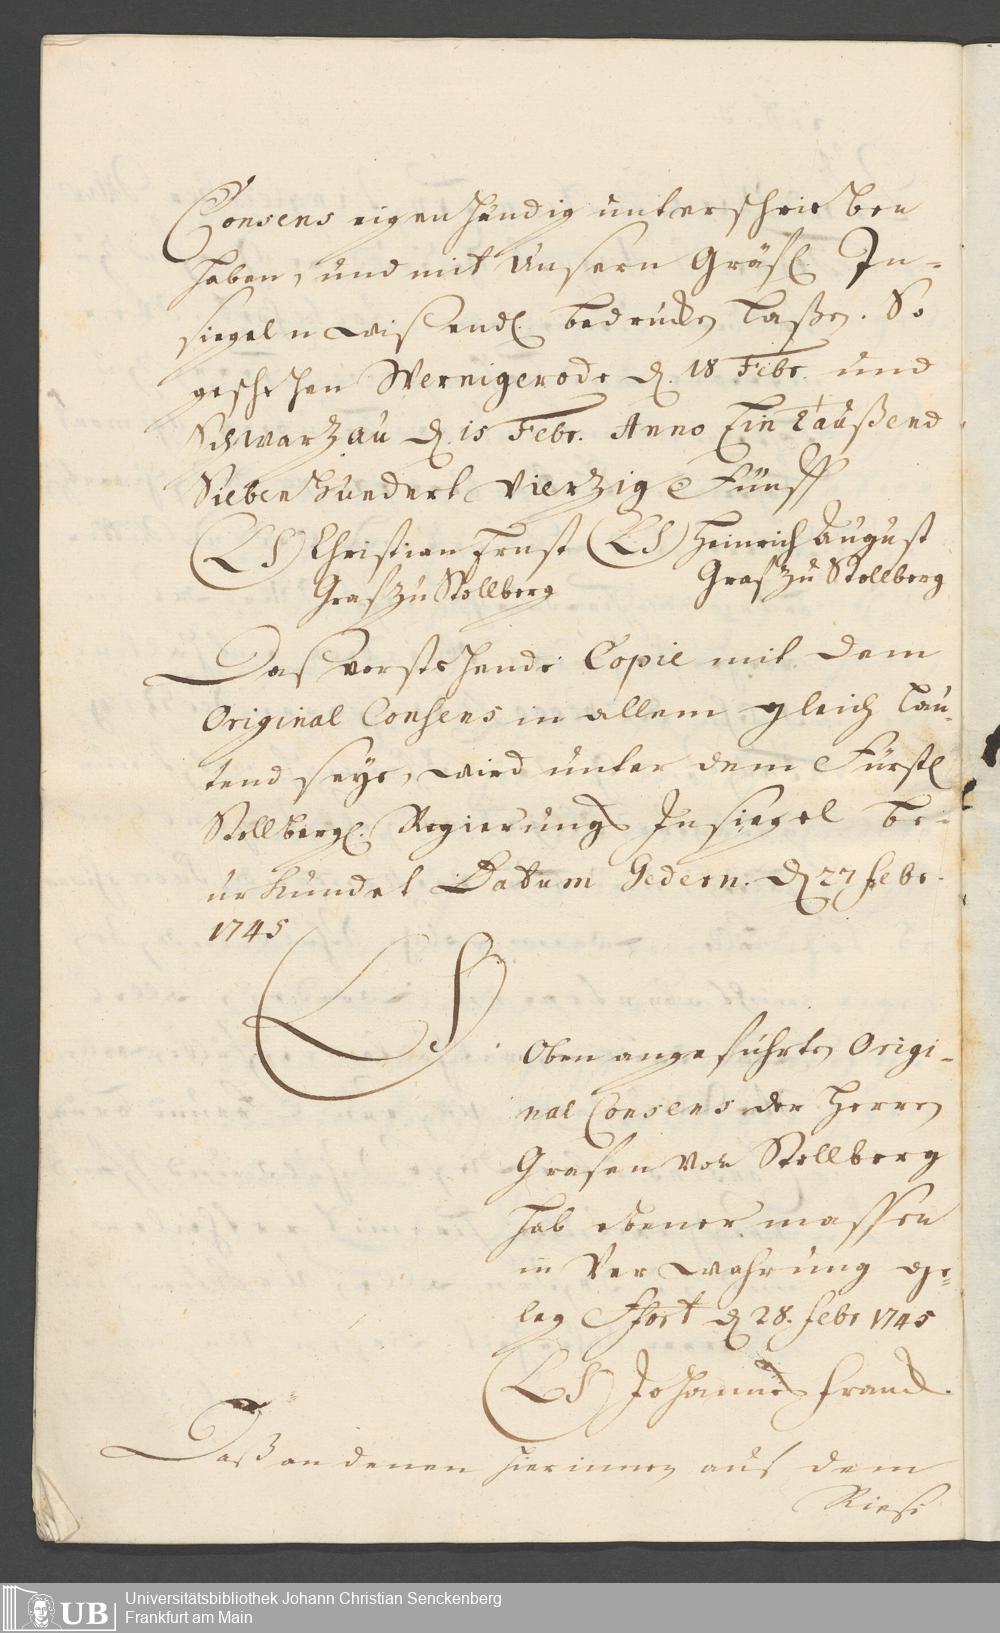 Consens eigenhändig unterschrieben
haben, und mit Unsern Gräfl. In-
siegeln wissendl. bedrucken laßen. So
geschehen Wernigerode d. 18 Febr. und
Schwarzau d. 15 Febr. Anno Ein Taußend
Siebenhundert Vierzig Fünff
(LS) Christian Ernst (LS) Heinrich August
Graf zu Stollberg Graf zu Stollberg
Daß vorstehende Copie mit dem
Original Consens in allem gleich lau-
tend seye, wird unter dem Fürstl
Stollbergl. Regierungs Insiegel be-
urkundet Datum Gedern. d 27 Febr.
1745
LS
Oben angeführten Origi-
nal Consens der Herren
Grafen von Stollberg
hab ebener massen
in Verwahrung ge-
leg Ffort d 28. Febr 1745
(LS) Johannes Franck.
Daß an denen hierinnen auf dem
Riesi
Universitätsbibliothek Johann Christian Senckenberg
Frankfurt am Main
UB